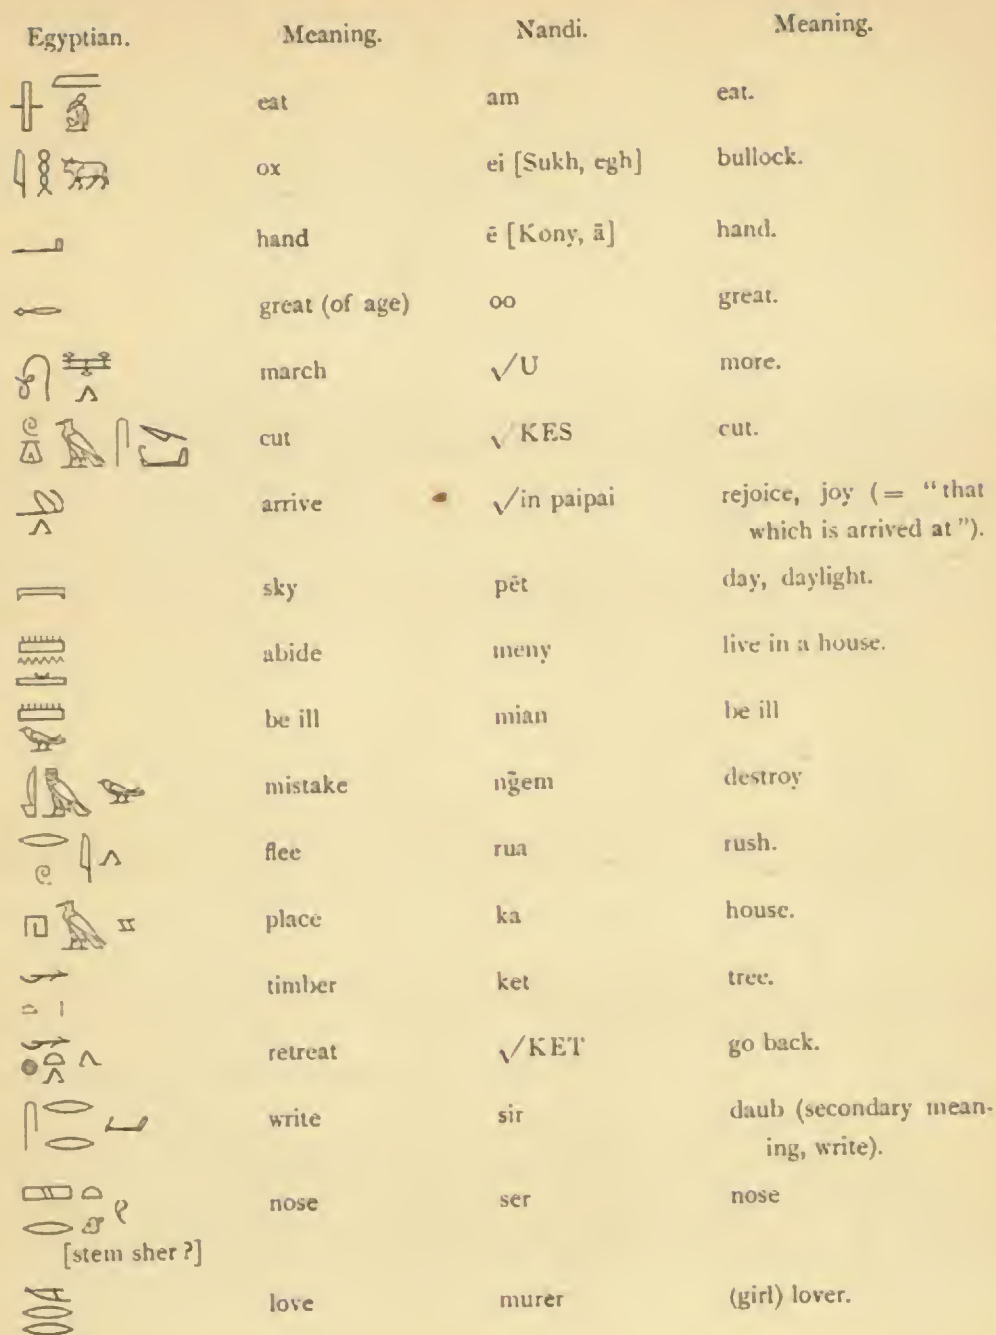 Egyptian. Meaning. Nandi. Meaning.
eat am eat.
ox ei [Sukh, egh] bullock.
hand ē [Kony, ā] hand.
great (of age) oo great.
march √U more.
cut √KES cut.
arrive √in paipai rejoice, joy (= “that
which is arrived at”).
sky pēt day, daylight.
abide meny live in a house.
be ill mian be ill
mistake ng̃em destroy
flee rua rush.
place ka house.
timber ket tree.
retreat √KET go back.
write sir daub (secondary mean-
ing, write).
nose ser nose
[stem sher?]
love murer (girl) lover.